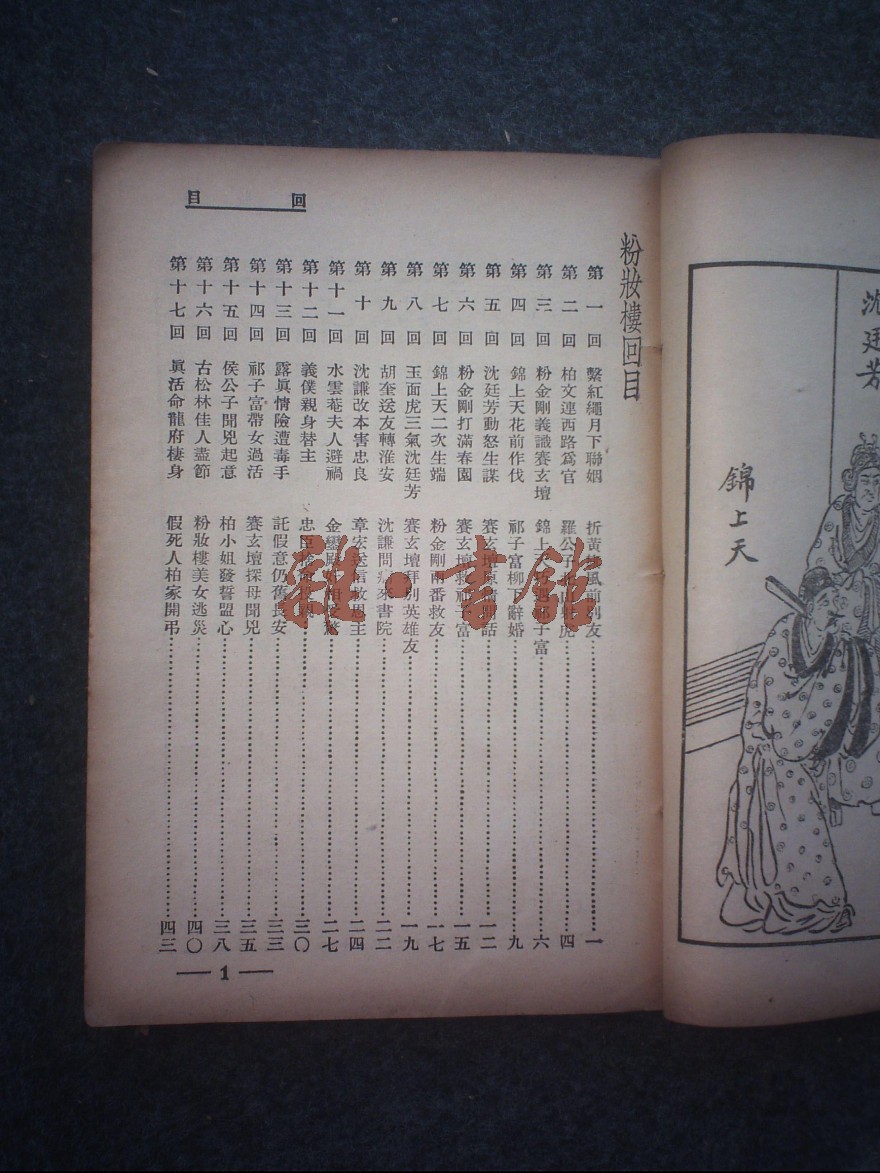 回目
粉妝樓回目
第一回 繫紅繩月下聯姻 折黃風前別友 一
第二回 柏文連西路爲官 羅公子虎 四
第三回 粉金剛義識賽玄壇 錦上天祁子富 六
第四回 錦上天花前作伐 祁子富柳下辭婚 九
第五回 沈廷芳動怒生謀 賽玄壇原情話 一二
第六回 粉金剛打滿春園 賽玄壇救祁子富 一五
第七回 錦上天二次生端 粉金剛兩番救友 一七
第八回 玉面虎三氣沈廷芳 賽玄壇拜別英雄友 一九
第九回 胡奎送友轉淮安 沈謙問病來書院 二二
第十回 沈謙改本害忠良 章宏送信救恩主 二四
第十一回 水雲菴夫人避禍 金鑾殿 二七
第十二回 義僕親身替主 忠臣 三〇
第十三回 露眞情險遭毒手 託假意仍舊長安 三三
第十四回 祁子富帶女過活 賽玄壇探母聞兇 三五
第十五回 侯公子聞兇起意 柏小姐發誓盟心 三八
第十六回 古松林佳人盡節 粉妝樓美女逃災 四〇
第十七回 眞活命龍府棲身 假死人柏家開弔 四三
1
沈廷芳
錦上天
雜·書館